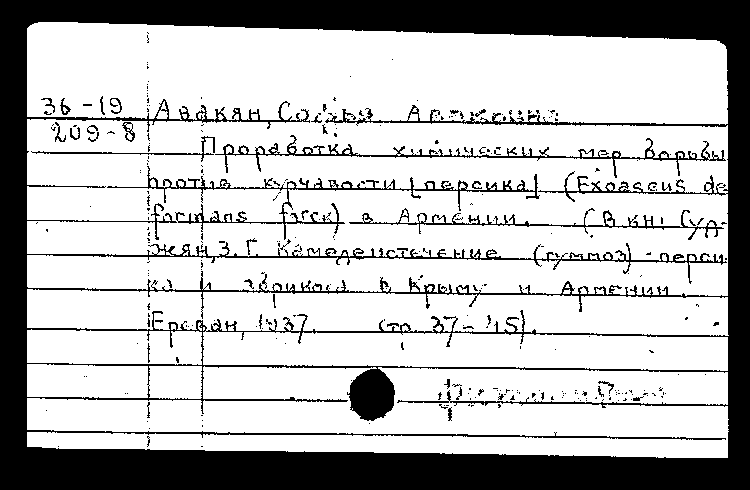 36-19
209-8
Авакян, Софья Аваковна
Проработка химических мер борьбы
против курчавости [персика] (Exoascus de
formans fuck) в Армении. (В кн: Суд-
жян, З. Г. Камедеистечение (гуммоз) перси-
ка и абрикоса в Крыму и Армении.
Ереван, 1937. стр. 37-45).